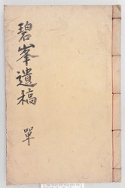 碧峯遺稿
單